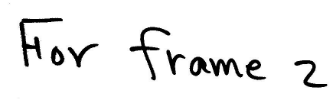 For frame 2